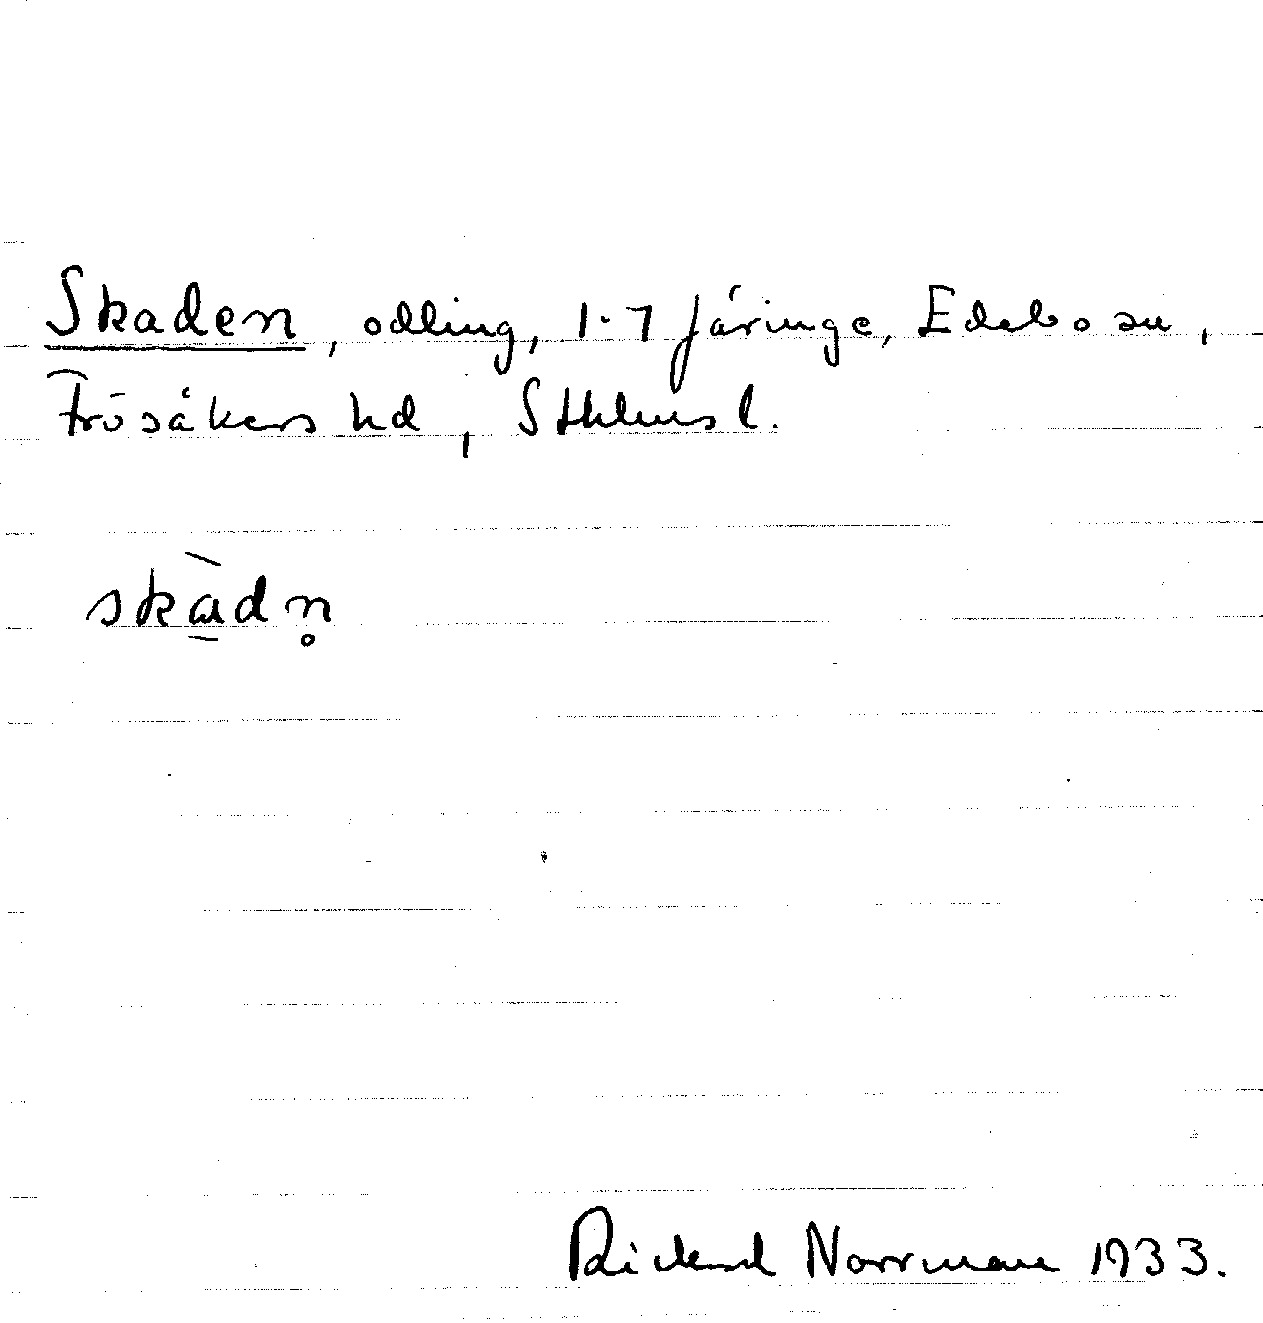 Skaden, odling, 1-7 Järinge, Edebo sn,
Frösåkers hd, Sthlms l.
skɑ̀̄dn̥
Rickard Norrman 1933.